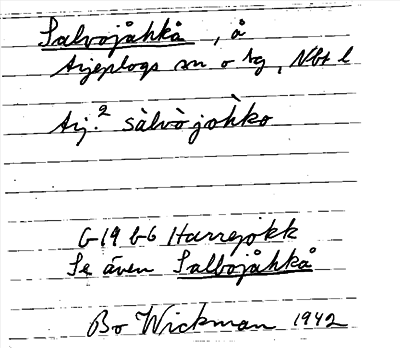 Salvojåhkå, å
Arjeplogs sn o lg, Nbt l
Arj.² sàlvò johko
G-19 b-6 Harrejokk
Se även Salbojåhkå
Bo Wickman 1942